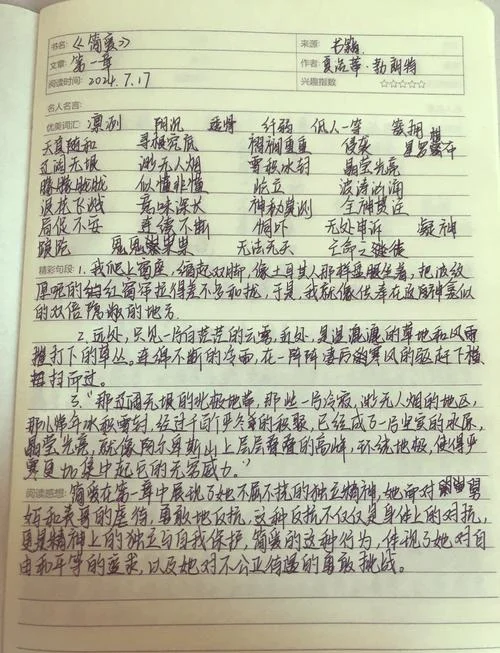 书名:《简爱》 来源: 书籍
文章: 第一章 作者: 夏洛蒂·勃朗特
阅读时间: 2024.7.17 兴趣指数: ☆☆☆☆☆
名人名言:
优美词汇: 凛冽 阴沉 透骨 纤弱 低人一等 簇拥
天真随和 寻根究底 褶裥重重 侵袭 星罗棋布
辽阔无垠 渺无人烟 雪积冰封 晶莹光亮
朦朦胧胧 似懂非懂 屹立 波涛汹涌
浪花飞溅 意味深长 神秘莫测 全神贯注
局促不安 连绵不断 恫吓 无处申诉 凝神
踉跄 鬼鬼祟祟 无法无天 亡命之徒
精彩句段: 1. 我爬上窗座,缩起双脚,像土耳其人那样盘腿坐着,把波纹
厚呢的红窗帘拉得差不多合拢,于是,我就像供奉在这神龛似
的双倍隐蔽的地方。
2. 远处,只见一片白茫茫的云雾,近处,是湿漉漉的草地和风雨
打下的草丛。连绵不断的冷雨,在一阵阵凄厉的寒风的驱赶下横
扫而过。
3. “那辽阔无垠的北极地带,那些一片冷寂、渺无人烟的地区,
那儿常年冰积雪封,经过千百个严冬的积聚,已经成了一片坚实的冰原,
晶莹光亮,就像阿尔卑斯山上层层叠叠的高峰,环绕地极,使得严
寒更加集中起它的无穷威力。”
阅读感想: 简爱在第一章中展现了她不屈不挠的独立精神,她面对舅
妈和表哥的虐待,勇敢地反抗,这种反抗不仅仅是身体上的对抗,
更是精神上的独立与自我保护,简爱的这种行为,体现了她对自
由和平等的追求,以及她对不公正待遇的勇敢挑战。